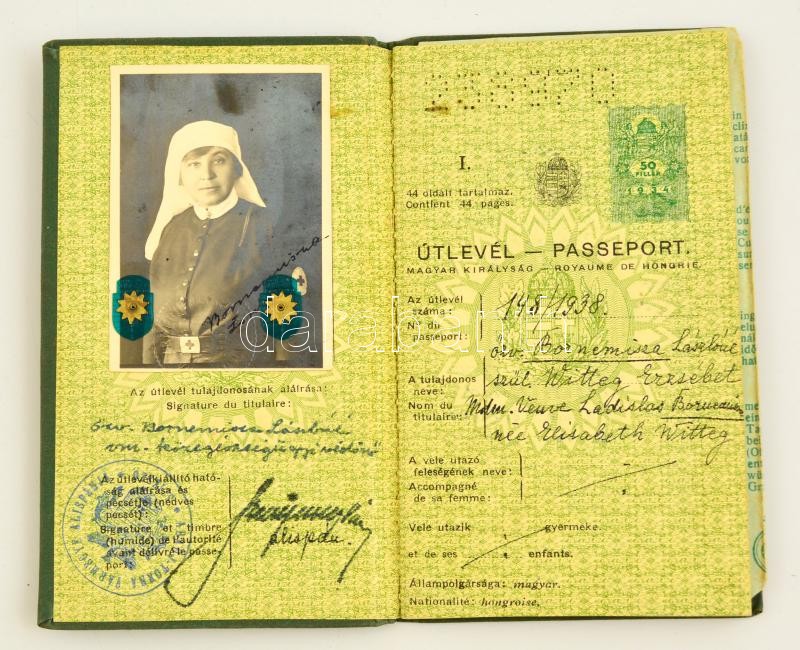 Bornemisza
Az útlevél tulajdonosának aláírása:
Signature du titulaire:
özv. Bornemisza Lászlóné
vm. közegészségügyi védőnő
Az útlevélkiállító ható-
ság aláírása és
pecsétje (nedves
pecsét):
Signature et timbre
(humide) de l'autorité
ayant délivré le passe-
port:
alispán.
I.
44 oldált tartalmaz.
Contient 44 pages.
50
FILLÉR
1934
ÚTLEVÉL — PASSEPORT.
MAGYAR KIRÁLYSÁG — ROYAUME DE HONGRIE.
Az útlevél
száma:
No du
passeport:
148/1938.
A tulajdonos
neve:
Nom du
titulaire:
özv. Bornemisza Lászlóné
szül. Witteg Erzsébet
Mdm. Veuve Ladislas Bornemisza
née Elisabeth Witteg
A vele utazó
feleségének neve:
Accompagné
de sa femme:
Vele utazik gyermeke.
et de ses enfants.
Állampolgársága: magyar.
Nationalité: hongroise.
darabanth